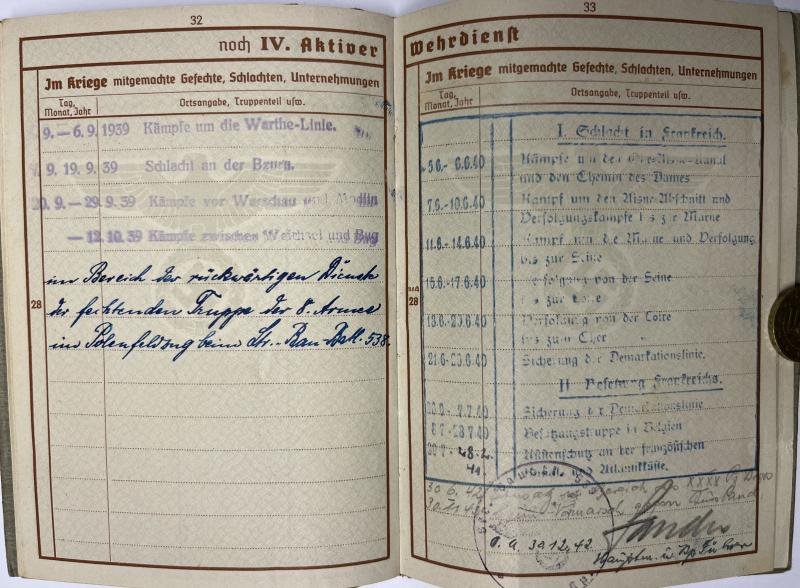 32
noch IV. Aktiver
Im Kriege mitgemachte Gefechte, Schlachten, Unternehmungen
Tag, Monat, Jahr
Ortsangabe, Truppenteil usw.
9. – 6.9. 1939 Kämpfe um die Warthe-Linie.
9. 19. 9. 39 Schlacht an der Bzura.
20. 9. – 29. 9. 39 Kämpfe vor Warschau und Modlin
– 12. 10. 39 Kämpfe zwischen Weichsel und Bug
im Bereich der rückwärtigen Dienste
28
der fechtenden Truppe der 8. Armee
im Polenfeldzug beim Str. Bau-Batl. 538.
33
Wehrdienst
Im Kriege mitgemachte Gefechte, Schlachten, Unternehmungen
Tag, Monat, Jahr
Ortsangabe, Truppenteil usw.
I. Schlacht in Frankreich.
5.6.- 6.6.40 Kämpfe um den Oise-Aisne-Kanal
und den Chemin des Dames
7.6.-10.6.40 Kampf um den Aisne-Abschnitt und
Verfolgungskämpfe bis zur Marne
11.6.-14.6.40 Kampf um die Marne und Verfolgung
bis zur Seine
15.6.-17.6.40 Verfolgung von der Seine
bis zur Loire
noch 28
18.6.-20.6.40 Verfolgung von der Loire
bis zum Cher
21.6-25.6.40 Sicherung der Demarkationslinie.
II Besetzung Frankreichs.
7.7.40 Sicherung der Demarkationslinie
8.7-28.7.40 Besatzungstruppe in Belgien
28.2. Küstenschutz an der französischen
41. und Atlantikküste.
30.6.42 Einsatz im Bereich des XXXX
Vormarsch
30.12.42
Hauptm. u.